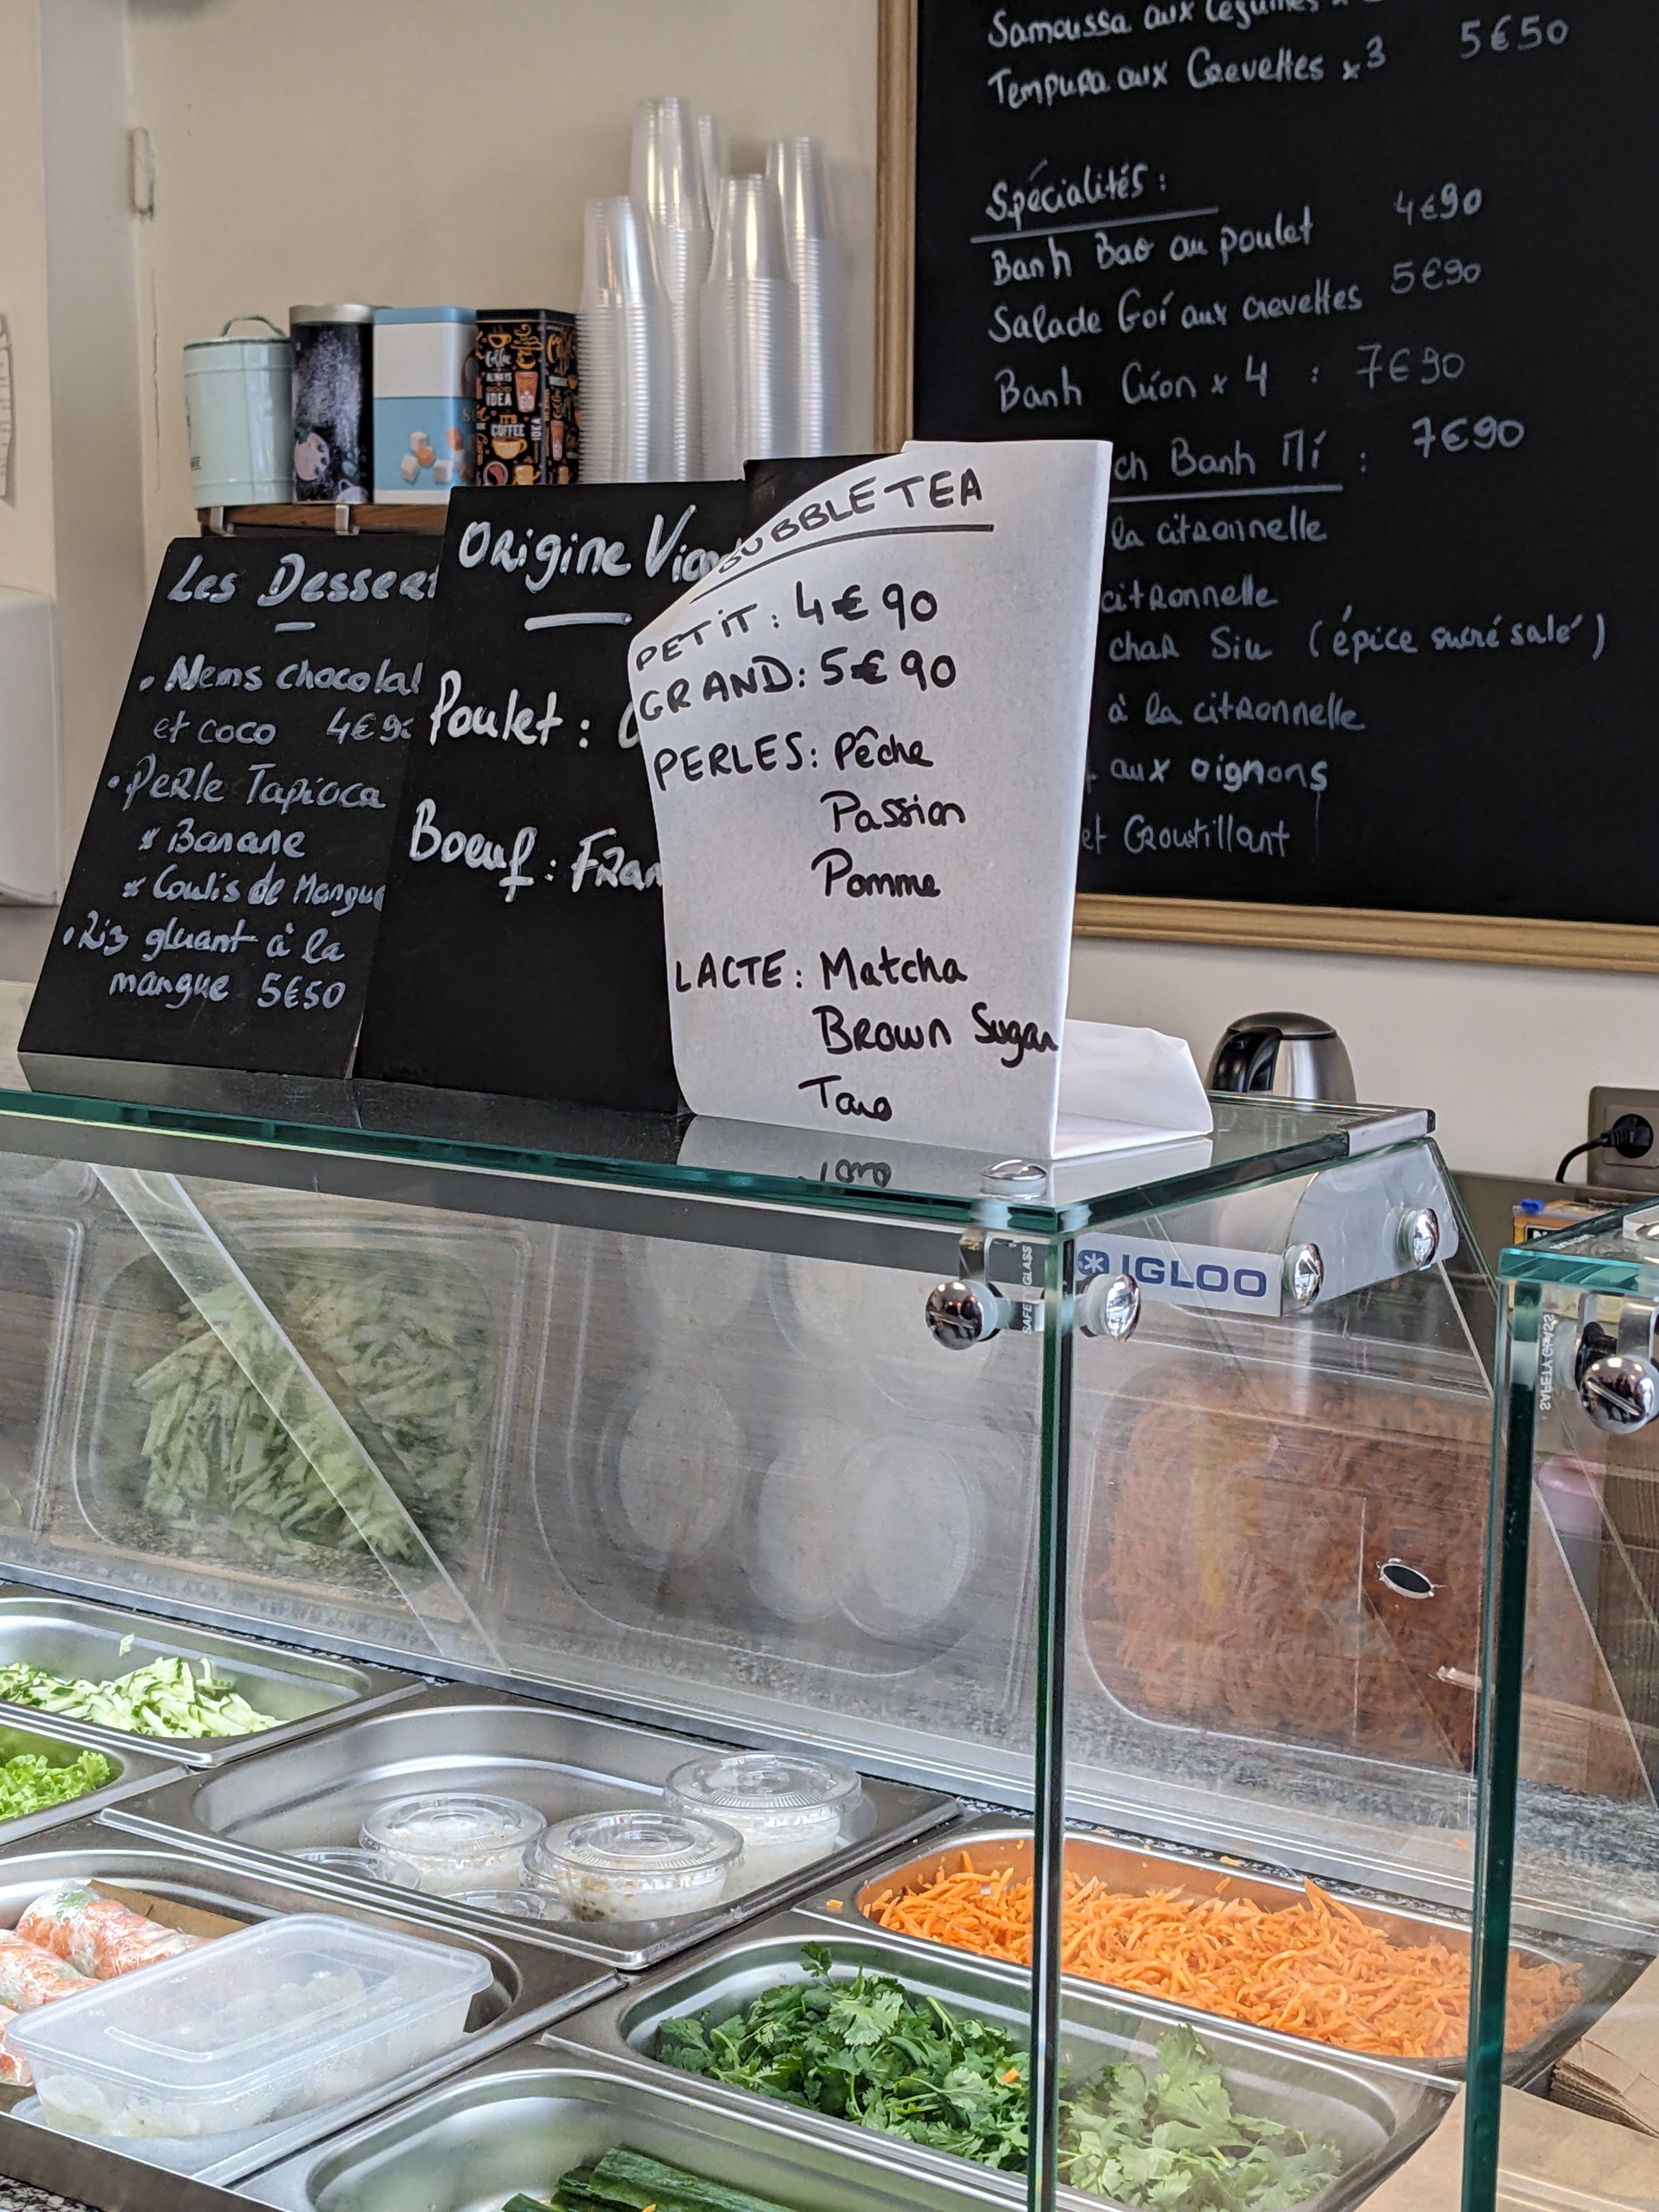 Samoussa aux légumes
Tempura aux Crevettes x3 5€50
Spécialités :
Banh Bao au poulet 4€90
Salade Goí aux crevettes 5€90
Banh Cúon x 4 : 7€90
ch Banh Mí : 7€90
la citronnelle
citronnelle
char Siu (épice sucré salé)
à la citronnelle
aux oignons
et Croustillant
Les Dessert
• Nems chocolat
et coco 4€90
• Perle Tapioca
* Banane
* Coulis de Mangue
• Riz gluant à la
mangue 5€50
Origine Vian
Poulet :
Boeuf : Fran
BUBBLE TEA
PETIT : 4€90
GRAND : 5€90
PERLES : Pêche
Passion
Pomme
LACTE : Matcha
Brown Sugar
Taro
IT'S
COFFEE
IDEA
IGLOO
SAFETY GLASS
SAFETY GLASS